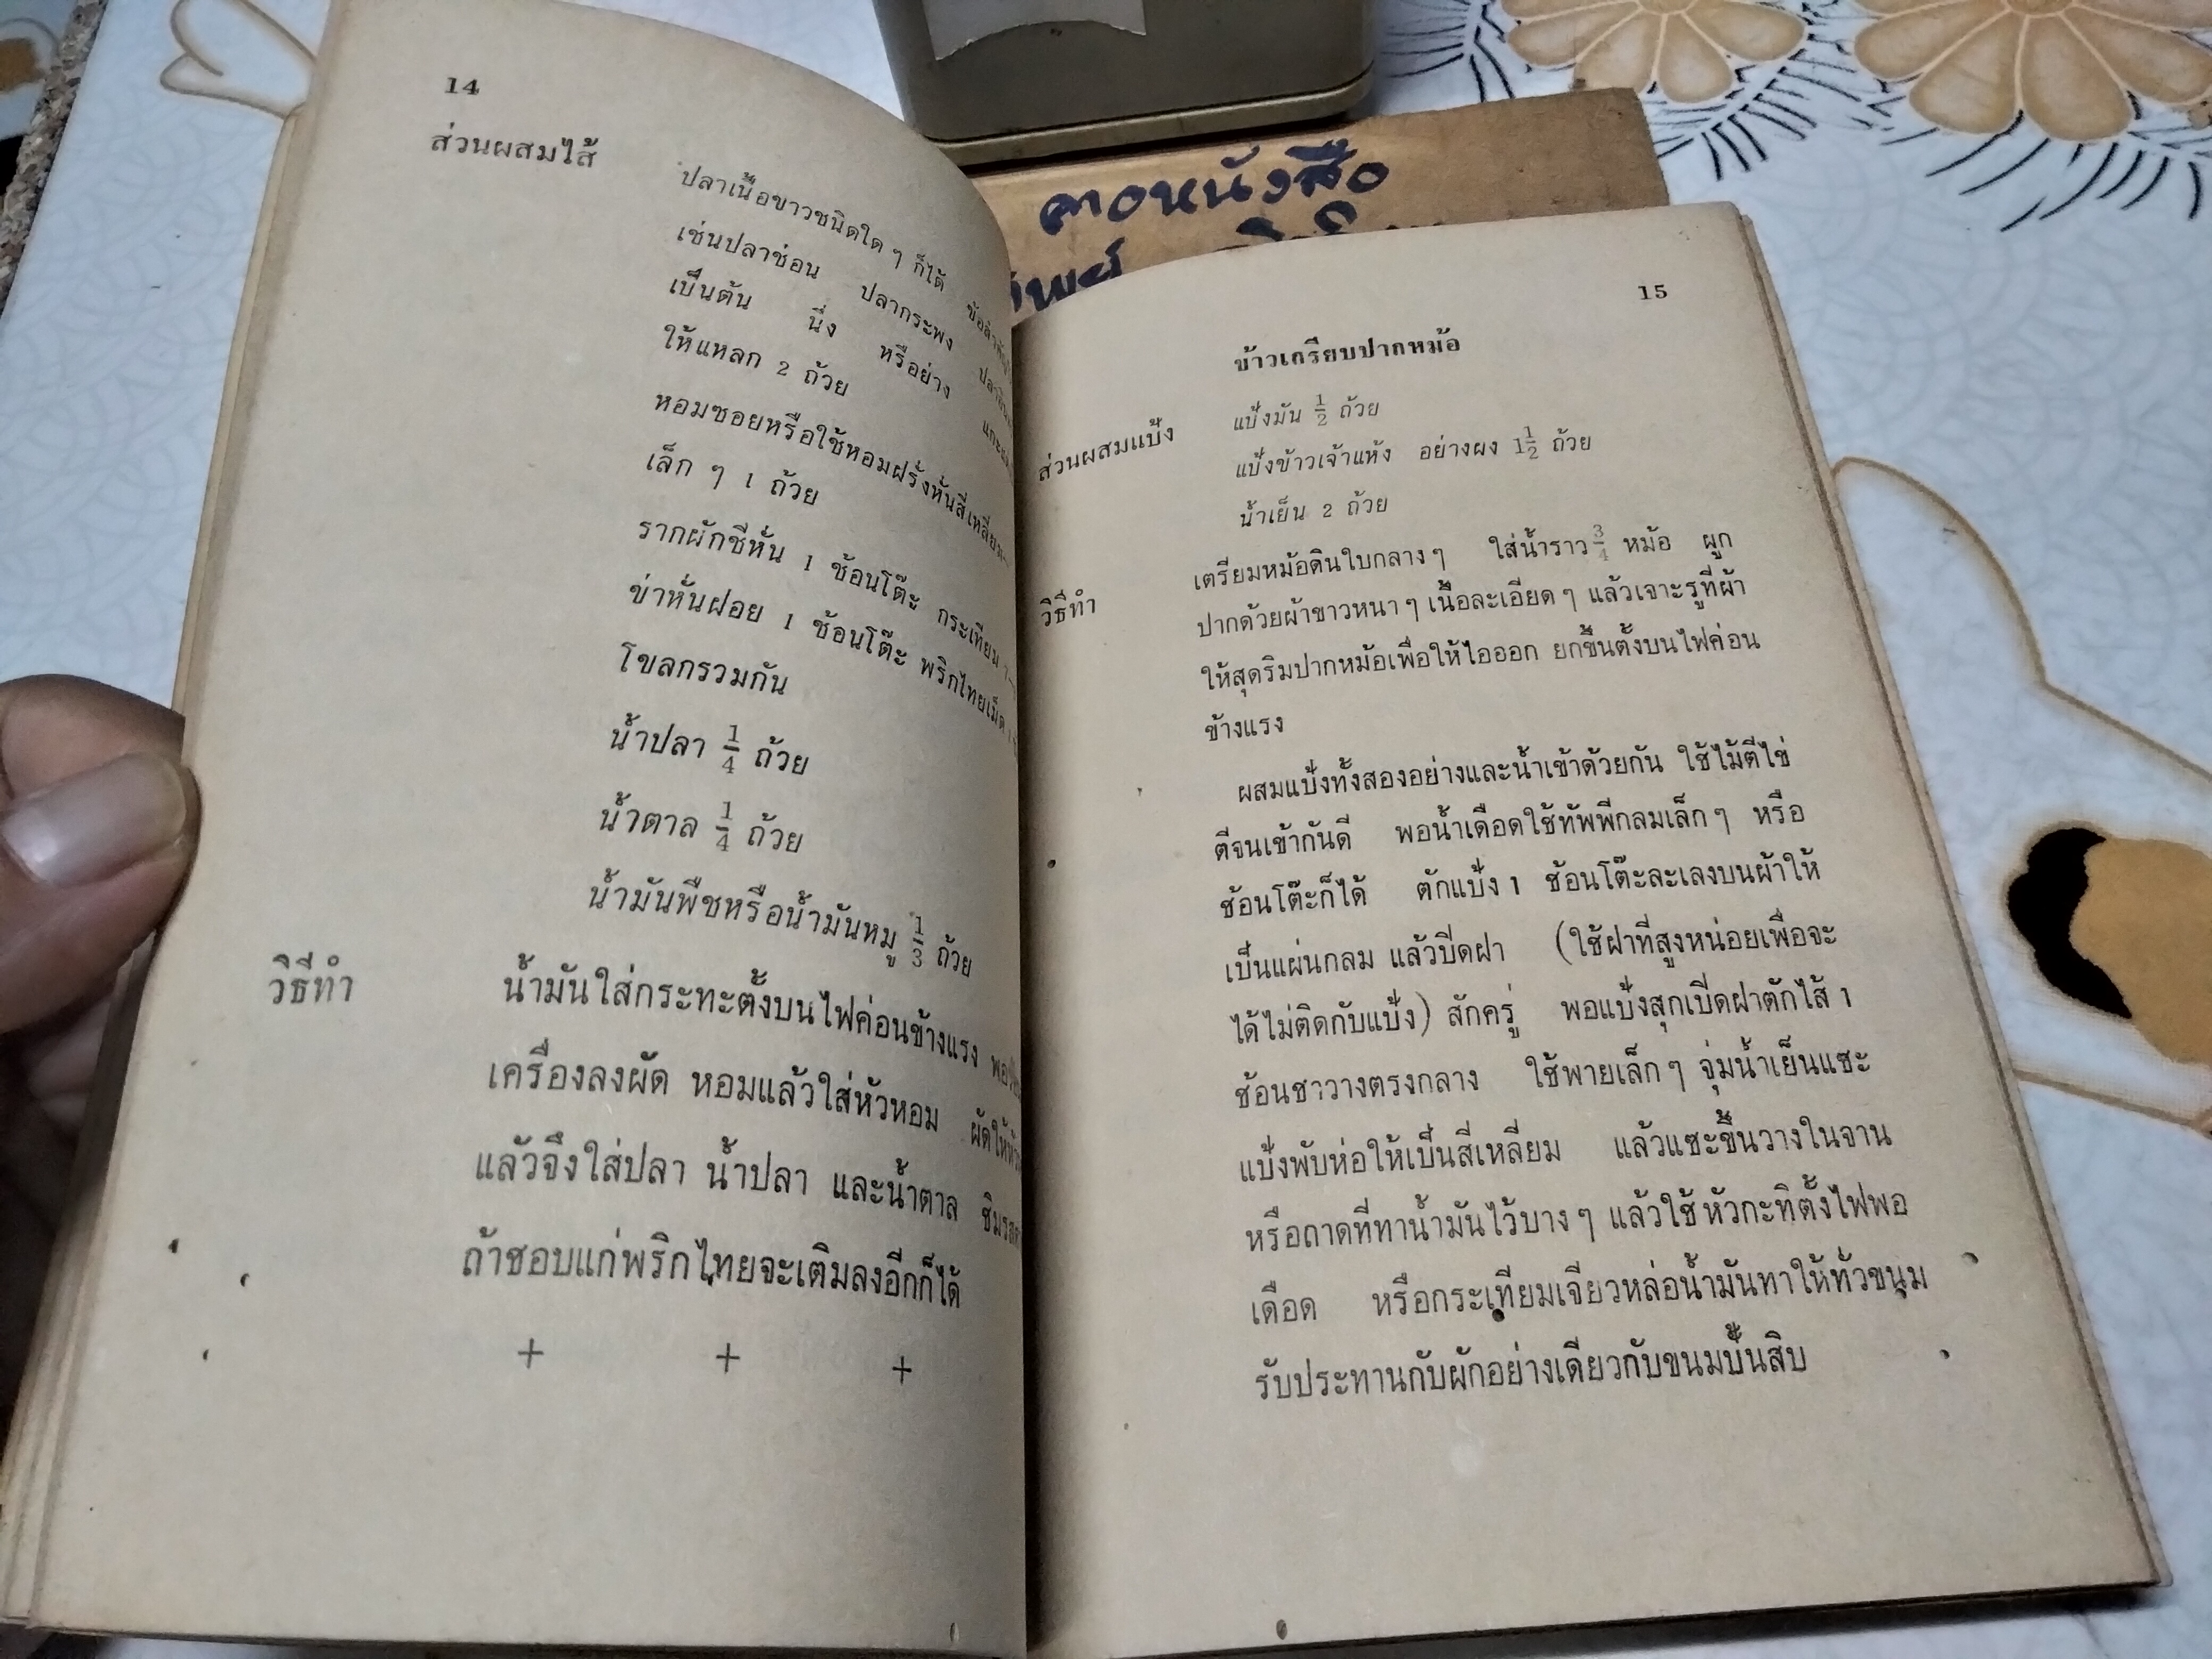 14
ส่วนผสมไส้
ปลาเนื้อขาวชนิดใด ๆ ก็ได้
เช่นปลาช่อน ปลากระพง
เป็นต้น นึ่ง หรือย่าง
ให้แหลก 2 ถ้วย
หอมซอยหรือใช้หอมฝรั่งหั่นสี่เหลี่ยม
เล็ก ๆ 1 ถ้วย
รากผักชีหั่น 1 ช้อนโต๊ะ กระเทียม
ข่าหั่นฝอย 1 ช้อนโต๊ะ พริกไทยเม็ด
โขลกรวมกัน
น้ำปลา 1/4 ถ้วย
น้ำตาล 1/4 ถ้วย
น้ำมันพืชหรือน้ำมันหมู 1/3 ถ้วย
วิธีทำ
น้ำมันใส่กระทะตั้งบนไฟค่อนข้างแรง
เครื่องลงผัด หอมแล้วใส่หัวหอม ผัดให้
แล้วจึงใส่ปลา น้ำปลา และน้ำตาล
ถ้าชอบแก่พริกไทยจะเติมลงอีกก็ได้
+ + +
คาอหนังสือ
15
ข้าวเกรียบปากหม้อ
ส่วนผสมแป้ง
แป้งมัน 1/2 ถ้วย
แป้งข้าวเจ้าแห้ง อย่างผง 1 1/2 ถ้วย
น้ำเย็น 2 ถ้วย
วิธีทำ
เตรียมหม้อดินใบกลาง ๆ ใส่น้ำราว 3/4 หม้อ ผูก
ปากด้วยผ้าขาวหนา ๆ เนื้อละเอียด ๆ แล้วเจาะรูที่ผ้า
ให้สุดริมปากหม้อเพื่อให้ไอออก ยกขึ้นตั้งบนไฟค่อน
ข้างแรง
ผสมแป้งทั้งสองอย่างและน้ำเข้าด้วยกัน ใช้ไม้ตีไข่
ตีจนเข้ากันดี พอน้ำเดือดใช้ทัพพีกลมเล็ก ๆ หรือ
ช้อนโต๊ะก็ได้ ตักแป้ง 1 ช้อนโต๊ะละเลงบนผ้าให้
เป็นแผ่นกลม แล้วปิดฝา (ใช้ฝาที่สูงหน่อยเพื่อจะ
ได้ไม่ติดกับแป้ง) สักครู่ พอแป้งสุกเปิดฝาตักไส้ 1
ช้อนชาวางตรงกลาง ใช้พายเล็ก ๆ จุ่มน้ำเย็นแซะ
แป้งพับห่อให้เป็นสี่เหลี่ยม แล้วแซะขึ้นวางในจาน
หรือถาดที่ทาน้ำมันไว้บาง ๆ แล้วใช้หัวกะทิตั้งไฟพอ
เดือด หรือกระเทียมเจียวหล่อน้ำมันทาให้ทั่วขนม
รับประทานกับผักอย่างเดียวกับขนมปั้นสิบ